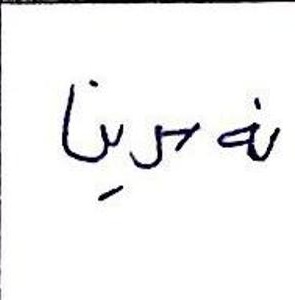 نەسرین